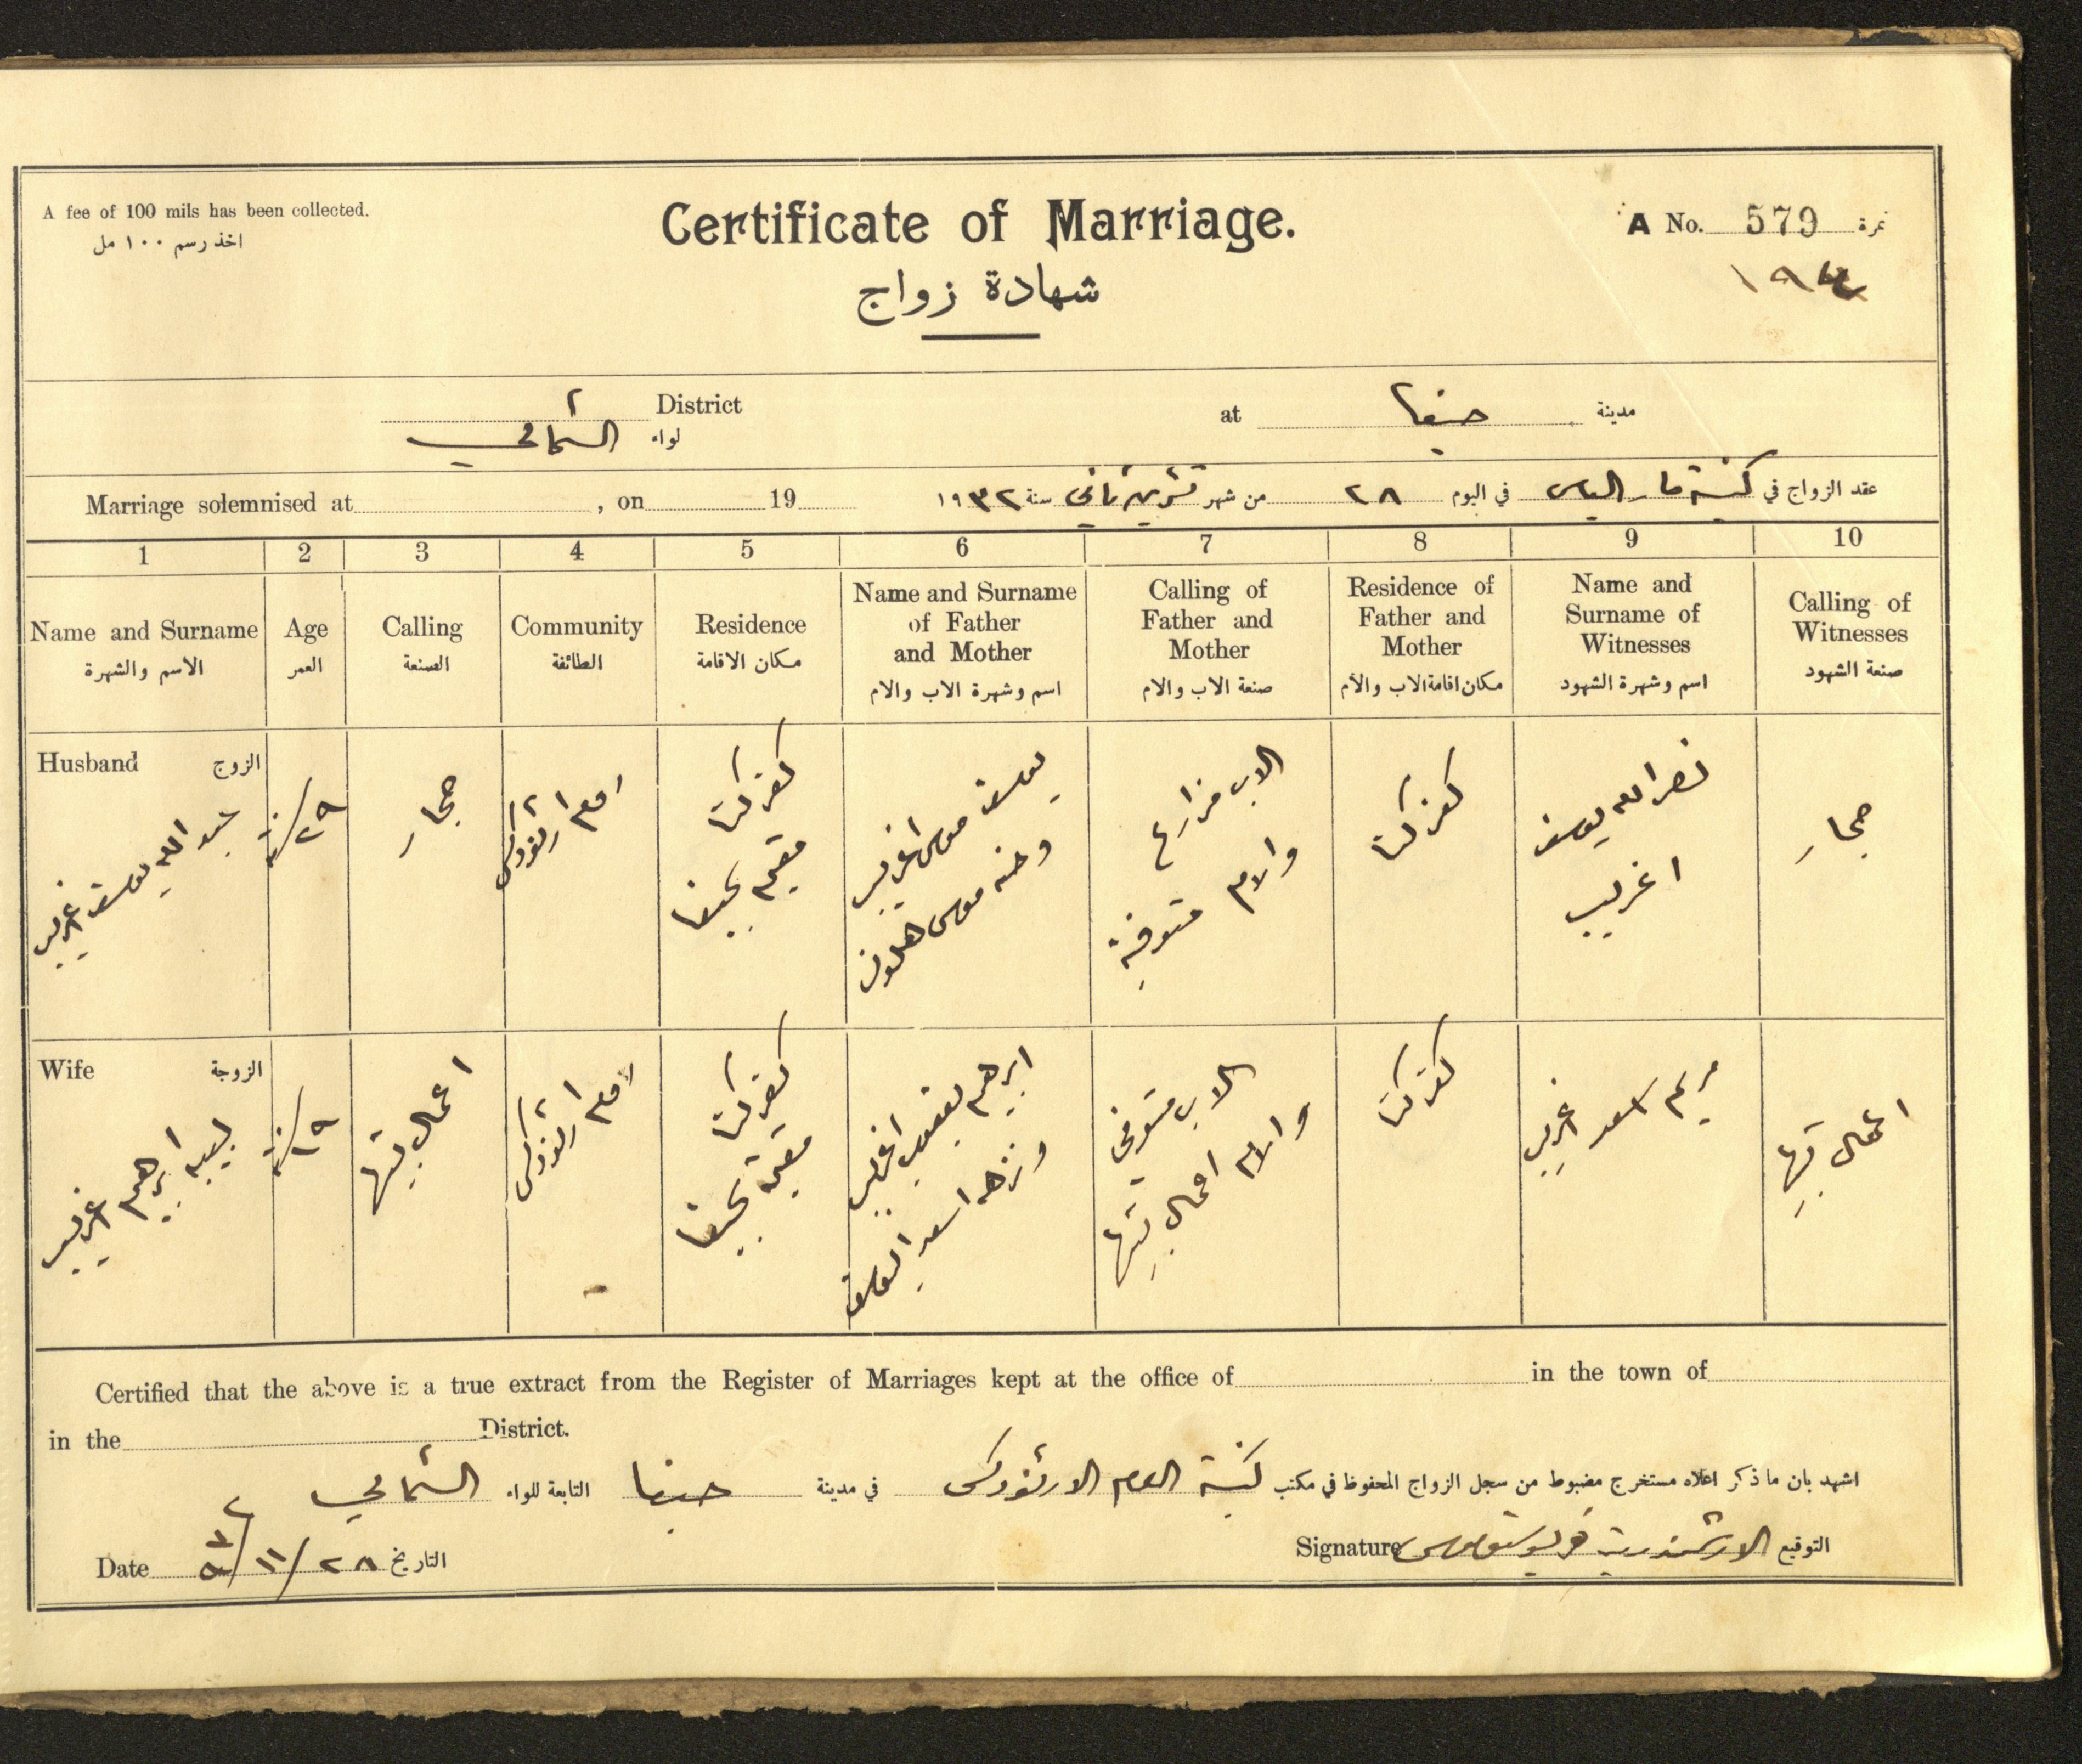 A fee of 100 mils has been collected.
اخذ رسم ١٠٠ مل
Certificate of Marriage.
شهادة زواج
A No. 579 نمرة
District
لواء الشمالي
at حيفا مدينة
Marriage solemnised at , on 19
عقد الزواج في كنيسة مار الياس في اليوم ٢٨ من شهر تشرين ثاني سنة ١٩٣٢
1 2 3 4 5 6 7 8 9 10
Name and Surname
الاسم والشهرة
Age
العمر
Calling
الصنعة
Community
الطائفة
Residence
مكان الاقامة
Name and Surname
of Father
and Mother
اسم وشهرة الاب والام
Calling of
Father and
Mother
صنعة الاب والام
Residence of
Father and
Mother
مكان اقامة الاب والام
Name and
Surname of
Witnesses
اسم وشهرة الشهود
Calling of
Witnesses
صنعة الشهود
Husband الزوج
عبد الله يوسف اغريب
٢٩ سنة
حجار
روم ارثوذكس
كفركنا
مقيم بحيفا
يوسف موسى اغريب
وحنه موسى
الاب مزارع
والام متوفية
كفركنا
نصر الله يوسف
اغريب
حجار
Wife الزوجة
لبيبه ابرهيم اغريب
١٩ سنة
اعمال بيتها
روم ارثوذكس
كفركنا
مقيمة بحيفا
ابرهيم يعقوب اغريب
ونزهه اسعد
الاب متوفي
والام اعمال بيتها
كفركنا
مريم اسعد غريب
اعمال بيتها
Certified that the above is a true extract from the Register of Marriages kept at the office of in the town of
in the District.
اشهد بان ما ذكر اعلاه مستخرج مضبوط من سجل الزواج المحفوظ في مكتب كنيسة الروم الارثوذكس في مدينة حيفا التابعة للواء الشمالي
Date ٢٨/١١/٩٣٢ التاريخ
Signature الارشمندريت التوقيع